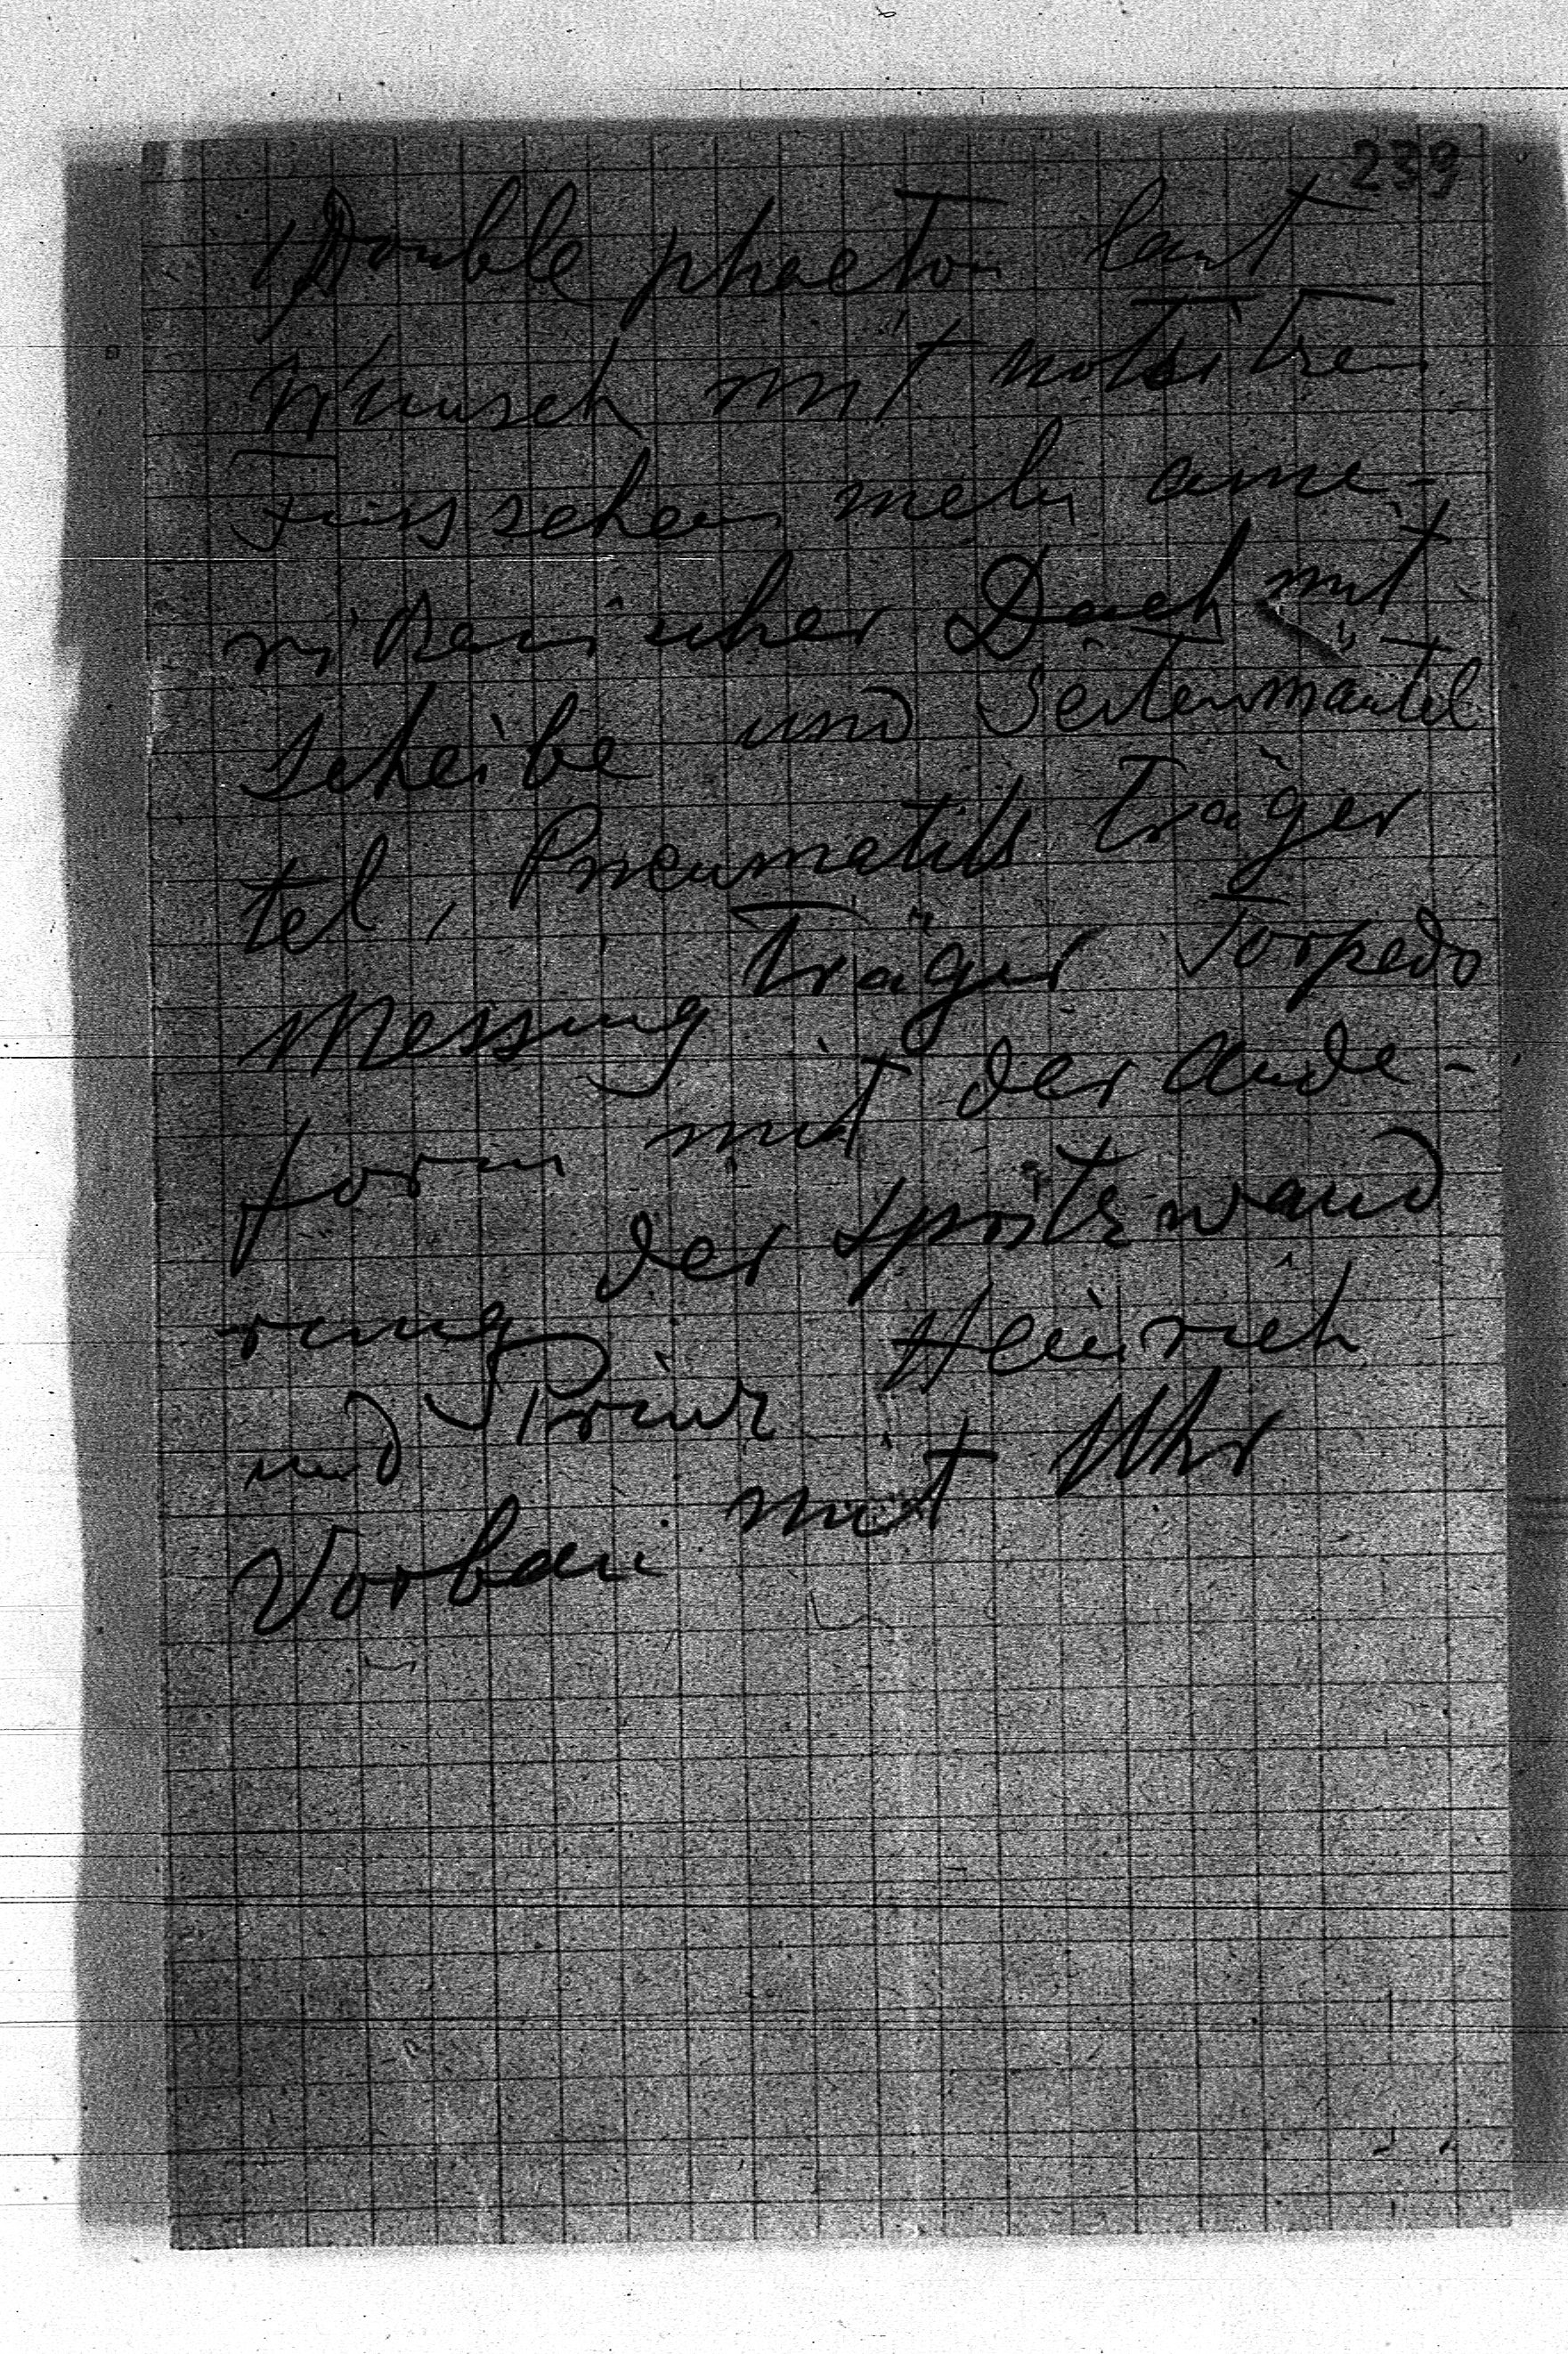 239
1 Double phaeton laut
Wunsch mit notsitzen
Fussschem mehr ame-
rikanischer Dach mit
scheibe und Seitenmäntel
tel, Pneumatik träger
Messing träger Torpedo
form mit der ände-
rung der spritzwand
und Prinz Heinrich
Vorbau mit Uhr